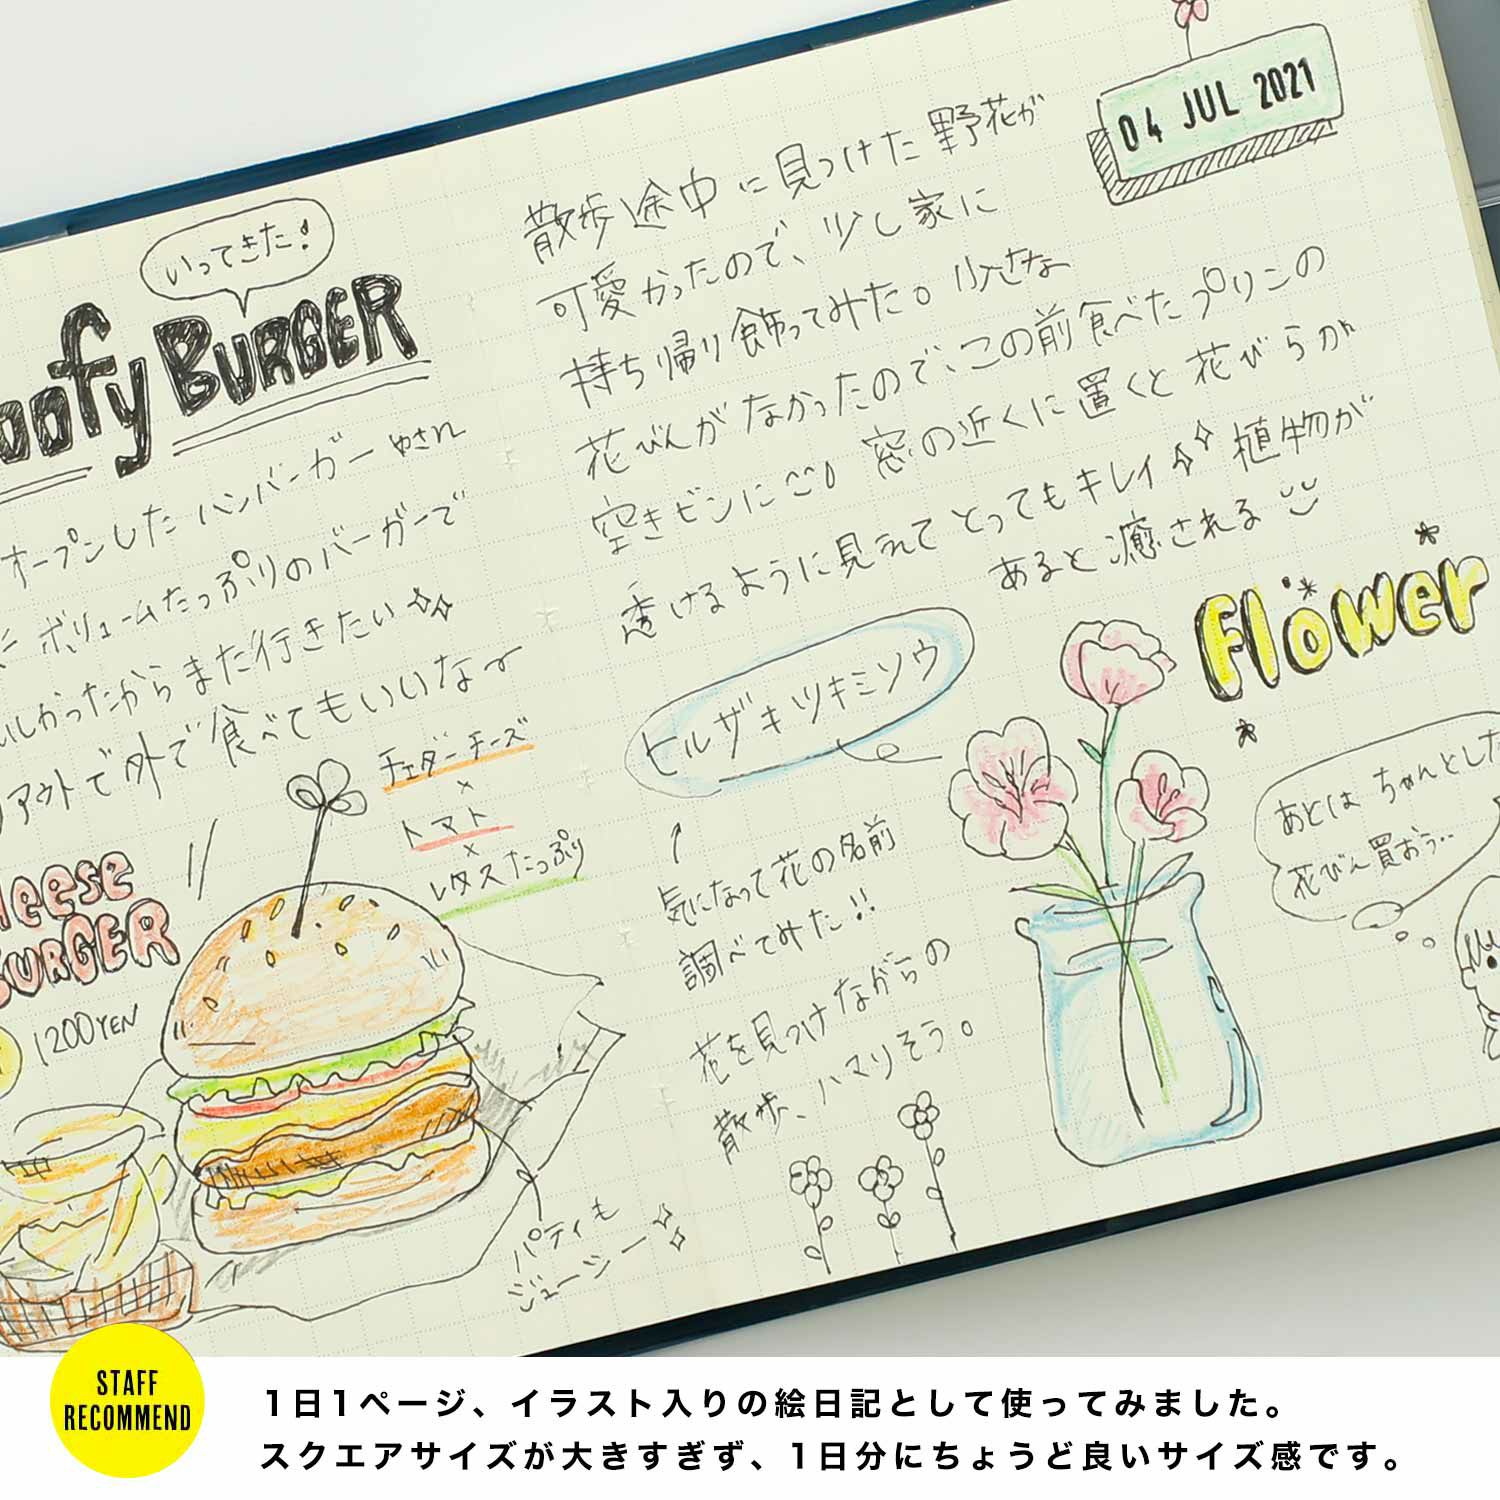 いってきた!
oofy BURGER
オープンしたハンバーガーやさん
ボリュームたっぷりのバーガーで
いしかったからまた行きたい
アウトで外で食べてもいいなー
チェダーチーズ
×
トマト
×
レタスたっぷり
heese
BURGER
1200YEN
パティも
ジューシー
04 JUL 2021
散歩途中に見つけた野花が
可愛かったので、少し家に
持ち帰り飾ってみた。小さな
花びんがなかったので、この前食べたプリンの
空きビンに 窓の近くに置くと花びらが
透けるように見えてとってもキレイ 植物が
あると癒される
Flower
ヒルザキツキミソウ
気になって花の名前
調べてみた!!
花を見つけながらの
散歩、ハマりそう。
あとはちゃんとした
花びん買おう..
STAFF
RECOMMEND
1日1ページ、イラスト入りの絵日記として使ってみました。
スクエアサイズが大きすぎず、1日分にちょうど良いサイズ感です。